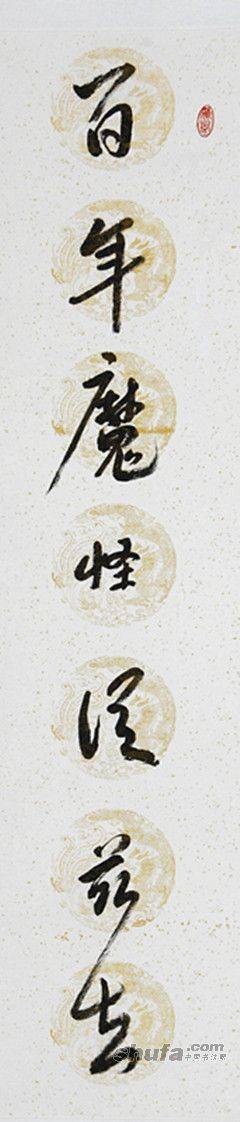 百年魔怪從茲去
shufa.com